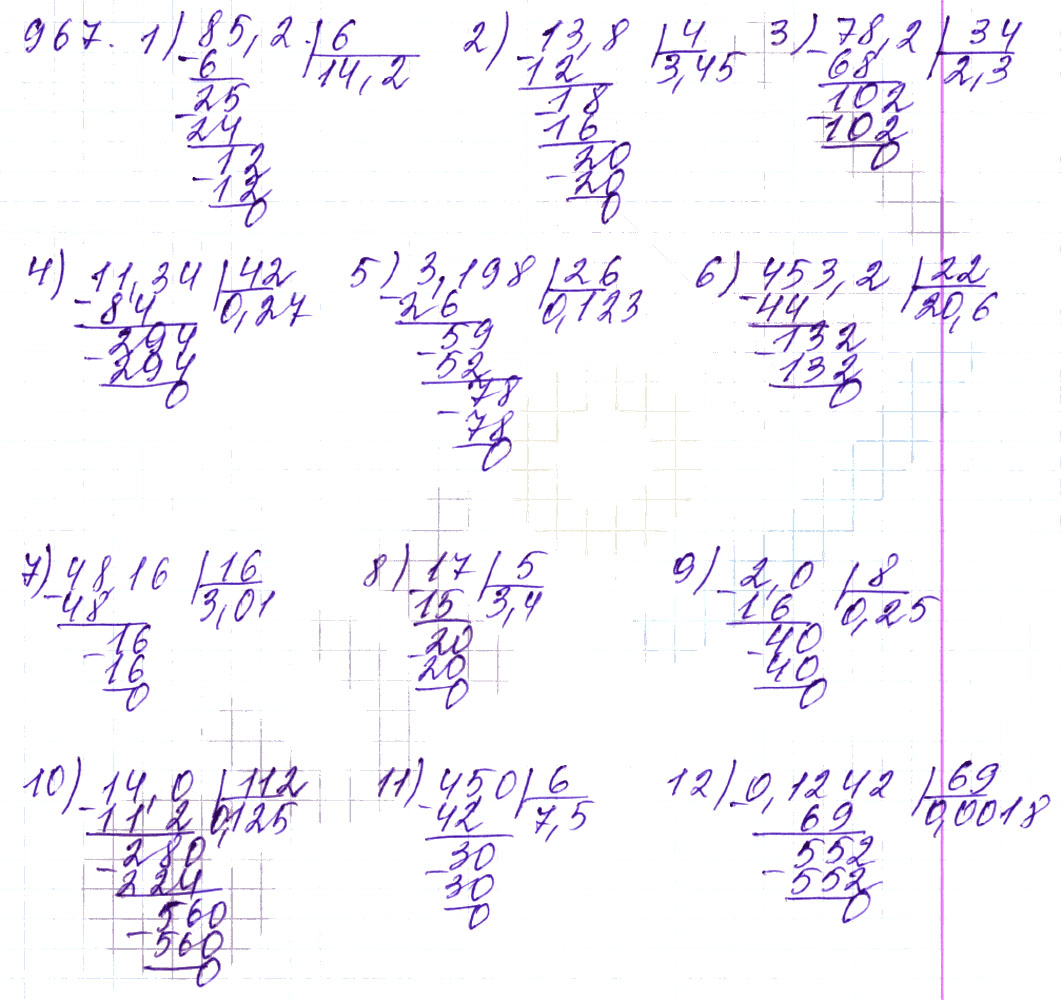 967. 1) 85,2 | 6 2) 13,8 | 4 3) 78,2 | 34
- 6 14,2 - 12 3,45 - 68 2,3
25 18 102
- 24 - 16 - 102
12 20 0
- 12 - 20
0 0
4) 11,34 | 42 5) 3,198 | 26 6) 453,2 | 22
- 84 0,27 - 26 0,123 - 44 20,6
294 59 132
- 294 - 52 - 132
0 78 0
- 78
0
7) 48,16 | 16 8) 17 | 5 9) 2,0 | 8
- 48 3,01 - 15 3,4 - 16 0,25
16 20 40
- 16 - 20 - 40
0 0 0
10) 14,0 | 112 11) 450 | 6 12) 0,1242 | 69
- 11 2 0,125 - 42 7,5 - 69 0,0018
280 30 552
- 224 - 30 - 552
560 0 0
- 560
0